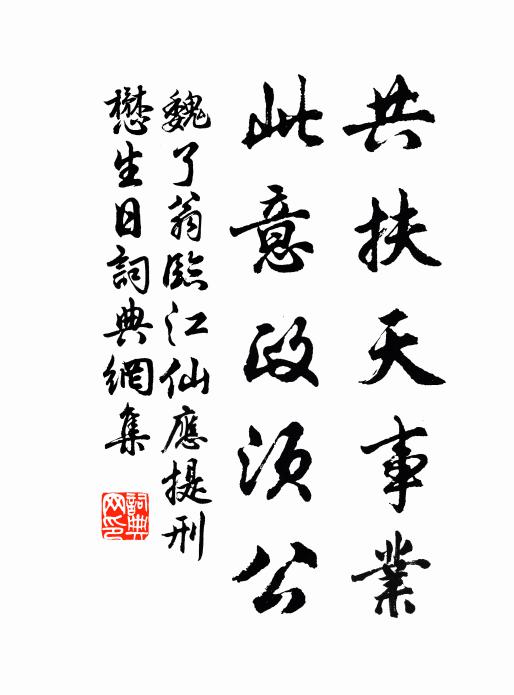 共扶天事業
此意政須公
魏了翁臨江仙應提刑
懋生日詞典網集
詞典网印